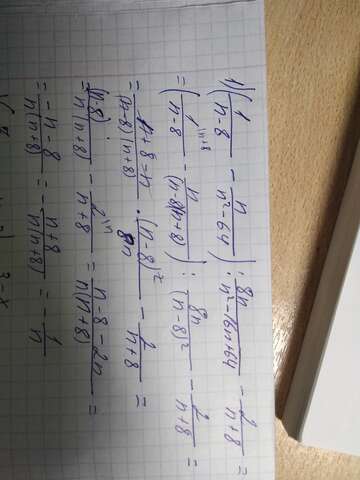 1) (1/(n-8) - n/(n²-64)) : 8n/(n²-16n+64) - 2/(n+8) =
= (1\n+8/(n-8) - n/((n-8)(n+8))) : 8n/(n-8)² - 2/(n+8) =
= (n+8-n)/((n-8)(n+8)) · (n-8)²/8n - 2/(n+8) =
= (n-8)/(n(n+8)) - 2\n/(n+8) = (n-8-2n)/(n(n+8)) =
= (-n-8)/(n(n+8)) = -(n+8)/(n(n+8)) = -1/n
3-x